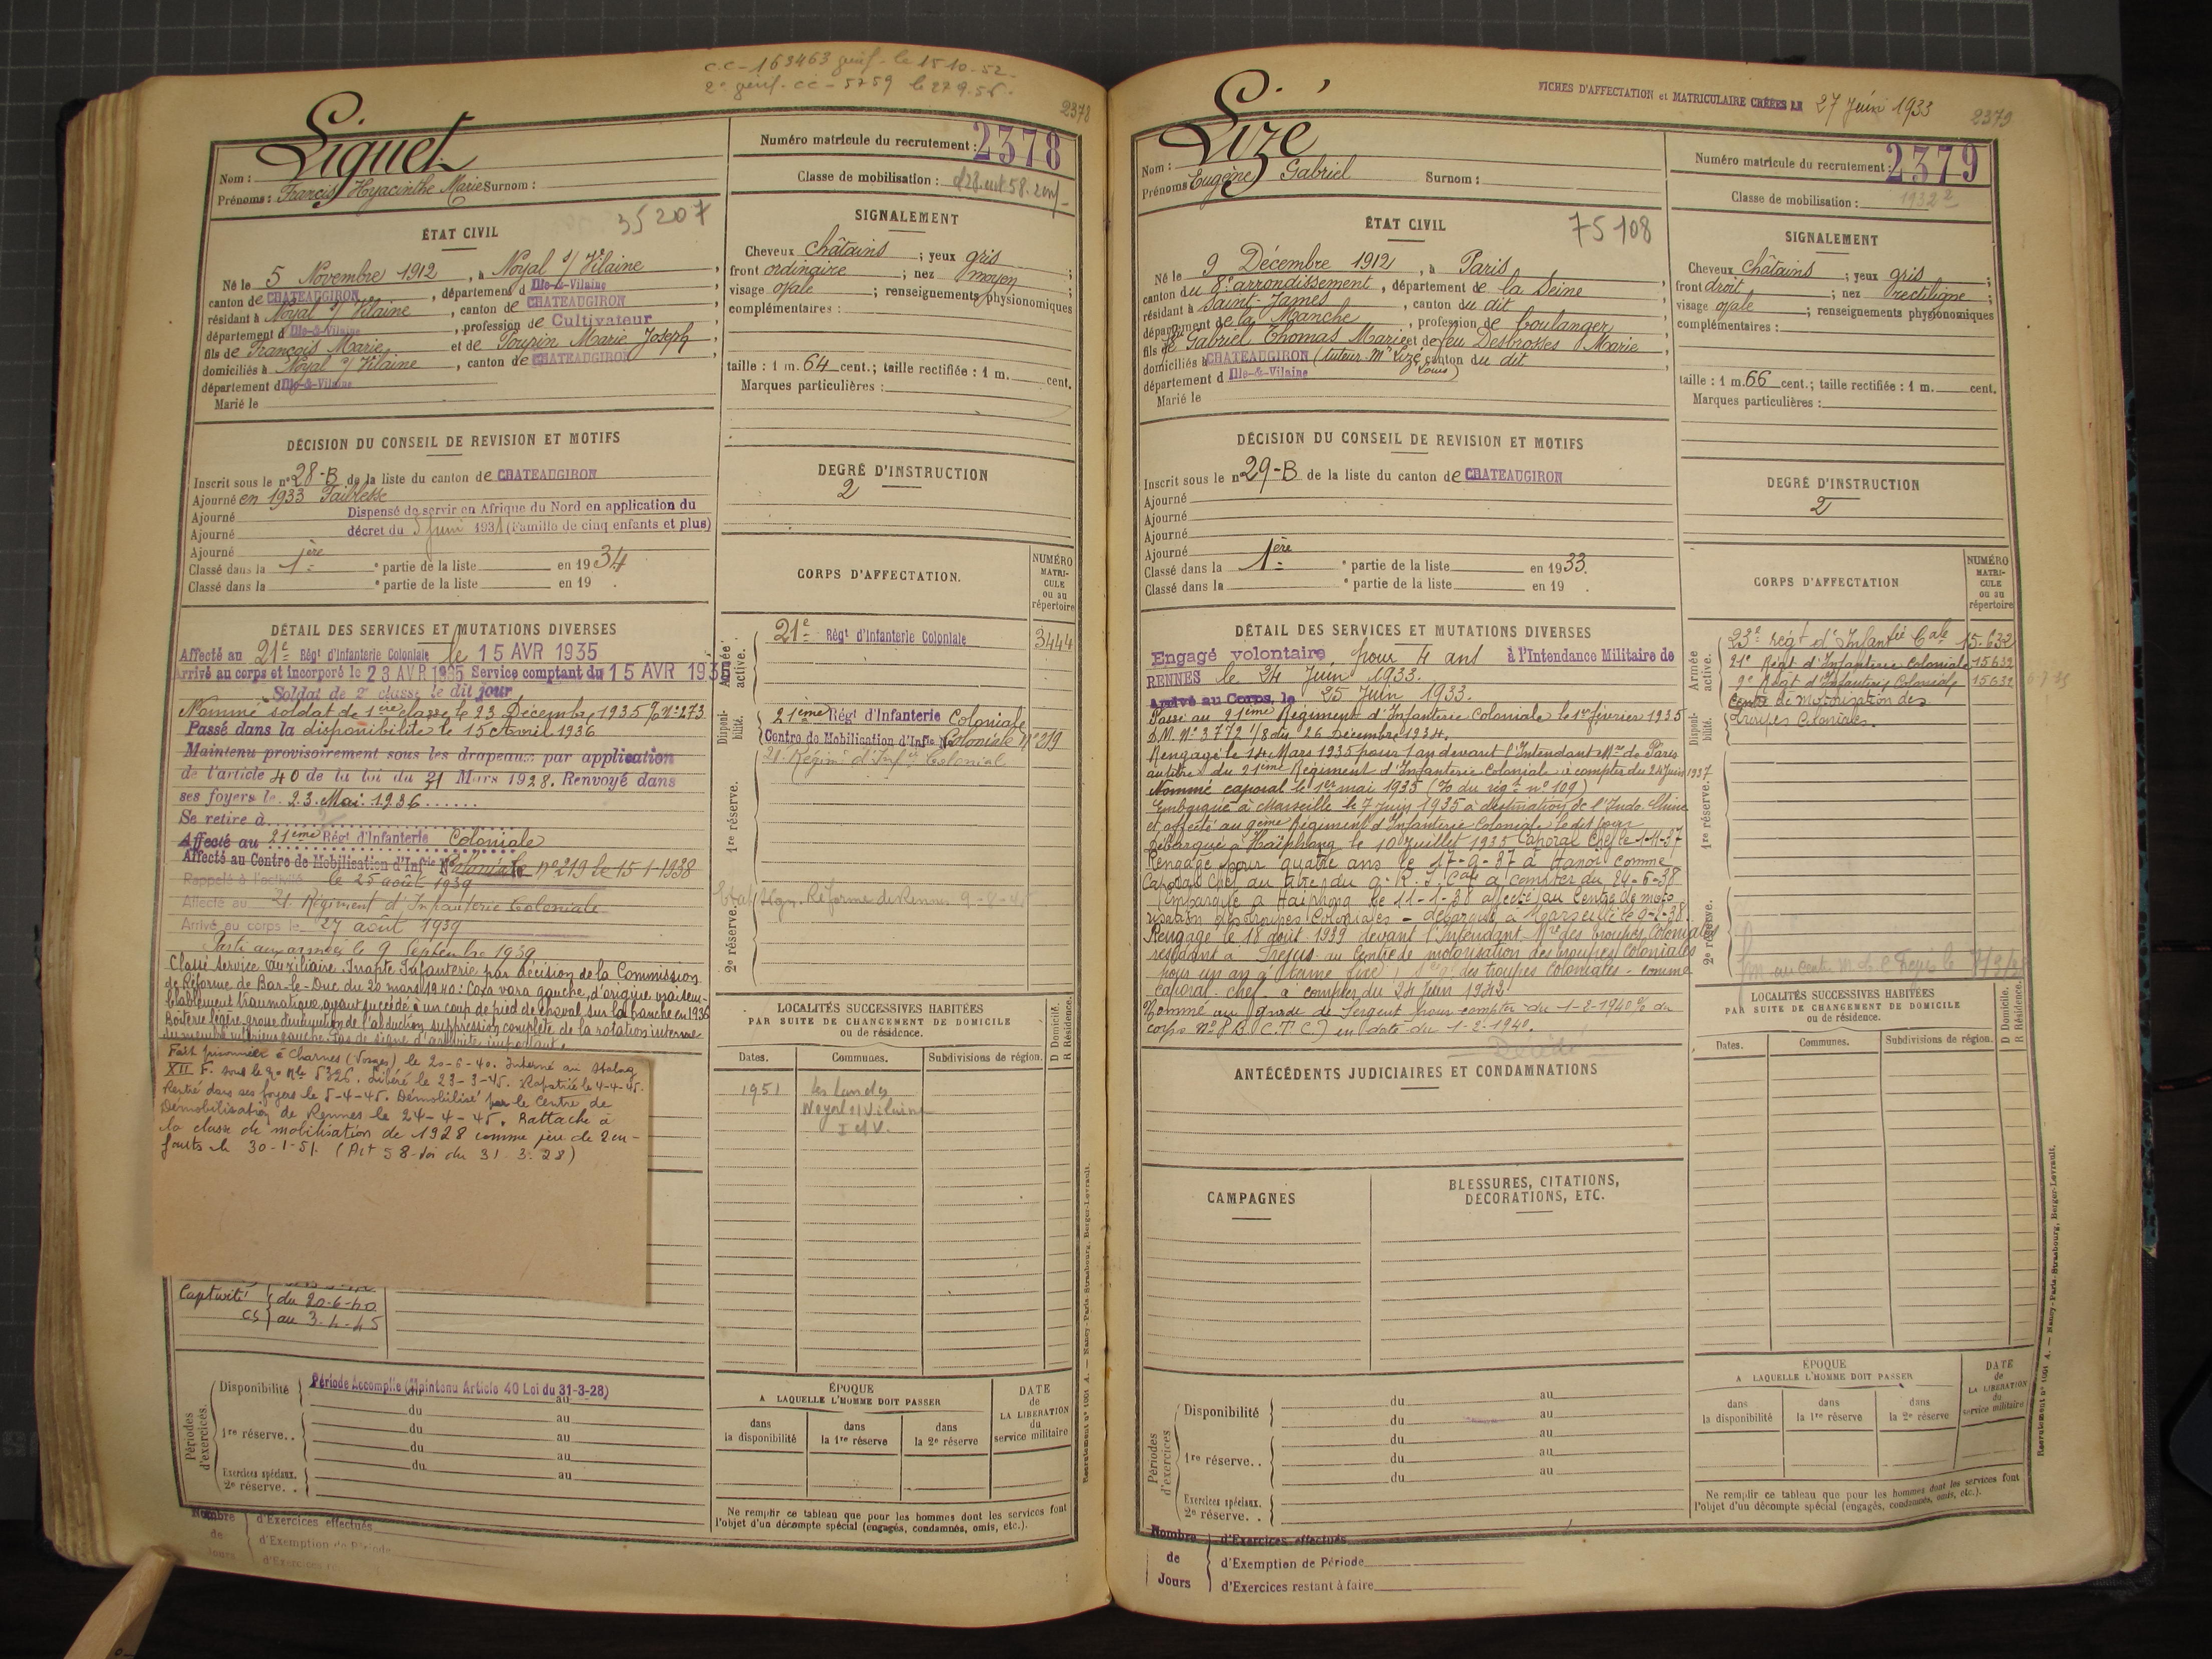 C.C - 163463 le 15-10-52
2378
Liguet
Nom :
Prénoms : Francis Hyacinthe Marie Surnom :
Numéro matricule du recrutement : 2378
Classe de mobilisation :
35207
ÉTAT CIVIL
Né le 5 Novembre 1912, à Noyal s/ Vilaine,
canton de CHATEAUGIRON, département d Ille-&-Vilaine,
résidant à Noyal s/ Vilaine, canton de CHATEAUGIRON,
département d Ille-&-Vilaine, profession de Cultivateur,
fils de François Marie et de Poupin Marie Joseph,
domiciliés à Noyal s/ Vilaine, canton de CHATEAUGIRON,
département d Ille-&-Vilaine
Marié le
SIGNALEMENT
Cheveux châtains ; yeux gris ;
front ordinaire ; nez moyen ;
visage ovale ; renseignements physionomiques
complémentaires :
taille : 1 m. 64 cent.; taille rectifiée : 1 m. cent.
Marques particulières :
DÉCISION DU CONSEIL DE REVISION ET MOTIFS
Inscrit sous le n° 28-B de la liste du canton de CHATEAUGIRON
Ajourné en 1933 Faiblesse
Ajourné Dispensé de servir en Afrique du Nord en application du
Ajourné décret du 5 Juin 1931 (Famille de cinq enfants et plus)
Ajourné
Classé dans la 1ère partie de la liste en 1934
Classé dans la ° partie de la liste en 19 .
DEGRÉ D'INSTRUCTION
2
DÉTAIL DES SERVICES ET MUTATIONS DIVERSES
Affecté au 21e Régt d'Infanterie Coloniale le 15 AVR 1935
Arrivé au corps et incorporé le 23 AVR 1935 Service comptant du 15 AVR 1935
Soldat de 2e classe le dit jour
Nommé soldat de 1ère classe le 23 Décembre 1935 % N° 273
Passé dans la disponibilité le 15 Avril 1936
Maintenu provisoirement sous les drapeaux par application
de l'article 40 de la loi du 31 Mars 1928. Renvoyé dans
ses foyers le 23 Mai 1936
Se retire à
Affecté au 21ème Régt d'Infanterie Coloniale
Affecté au Centre de Mobilisation d'Infie Coloniale n° 219 le 15-1-1938
Rappelé à l'activité le 25 août 1939
Affecté au 21 Régiment d'Infanterie Coloniale
Arrivé au corps le 27 août 1939
Parti aux armées le 9 Septembre 1939
Classé Service auxiliaire. Inapte Infanterie par décision de la Commission
de Réforme de Bar-le-Duc du 20 mars 1940 : Coxa vara gauche, d'origine vraisem-
blablement traumatique, ayant succédé à un coup de pied de cheval, sur la hanche en 1936
Boiterie légère, grosse diminution de l'abduction, suppression complète de la rotation interne
du membre inférieur gauche. Pas de signe d'arthrite important.
Fait prisonnier à Charmes (Vosges) le 20-6-40. Interné au stalag
XII F. sous le n° Mle 5326. Libéré le 23-3-45. Rapatrié le 4-4-45.
Rentré dans ses foyers le 5-4-45. Démobilisé par le Centre de
Démobilisation de Rennes le 24-4-45. Rattaché à
la classe de mobilisation de 1928 comme père de 2 en-
fants le 30-1-51. (Art 58 - loi du 31-3-28)
Captivité du 20-6-40
CS au 3-4-45
CORPS D'AFFECTATION.
NUMÉRO MATRI-CULE ou au répertoire
Armée active.
21e Régt d'Infanterie Coloniale 3444
Disponi-bilité.
21ème Régt d'Infanterie Coloniale
Centre de Mobilisation d'Infie Coloniale N° 219
21e Régimt d'Infie Colonial
1re réserve.
Réforme de Rennes
2e réserve.
LOCALITÉS SUCCESSIVES HABITÉES
PAR SUITE DE CHANGEMENT DE DOMICILE
ou de résidence.
D Domicile. R Résidence.
Dates. Communes. Subdivisions de région.
1951 Les Landes
Noyal s/ Vilaine
I et V.
Périodes d'exercices.
Disponibilité Période Accomplie (Maintenu Article 40 Loi du 31-3-28)
du au
1re réserve. . du au
du au
du au
Exercices spéciaux.
2e réserve. .
ÉPOQUE
A LAQUELLE L'HOMME DOIT PASSER
dans la disponibilité dans la 1re réserve dans la 2e réserve
DATE de LA LIBÉRATION du service militaire
Ne remplir ce tableau que pour les hommes dont les services font
l'objet d'un décompte spécial (engagés, condamnés, omis, etc.).
Nombre de Jours
d'Exercices effectués
d'Exemption de Période
Recrutement n° 1061 A. — Nancy-Paris-Strasbourg, Berger-Levrault.
FICHES D'AFFECTATION et MATRICULAIRE CRÉÉES LE 27 Juin 1933
2379
Lizé
Nom :
Prénoms : Eugène Gabriel Surnom :
Numéro matricule du recrutement : 2379
Classe de mobilisation : 1932
75108
ÉTAT CIVIL
Né le 9 Décembre 1912, à Paris
canton du 8e arrondissement, département de la Seine
résidant à Saint-James, canton du dit
département de la Manche, profession de boulanger
fils de Gabriel Thomas Marie et de feu Desbrosses Marie
domiciliés à CHATEAUGIRON (tuteur Mr Lizé Louis) canton du dit
département d Ille-&-Vilaine
Marié le
SIGNALEMENT
Cheveux châtains ; yeux gris ;
front droit ; nez rectiligne ;
visage ovale ; renseignements physionomiques
complémentaires :
taille : 1 m. 66 cent.; taille rectifiée : 1 m. cent.
Marques particulières :
DÉCISION DU CONSEIL DE REVISION ET MOTIFS
Inscrit sous le n° 29-B de la liste du canton de CHATEAUGIRON
Ajourné
Ajourné
Ajourné
Ajourné
Classé dans la 1ère partie de la liste en 1933.
Classé dans la ° partie de la liste en 19 .
DEGRÉ D'INSTRUCTION
2
DÉTAIL DES SERVICES ET MUTATIONS DIVERSES
Engagé volontaire pour 4 ans à l'Intendance Militaire de
RENNES le 24 Juin 1933.
Arrivé au Corps, le 25 Juin 1933.
Passé au 21ème Régiment d'Infanterie Coloniale le 1er février 1935
D.M. N° 3772 1/8 du 26 Décembre 1934.
Rengagé le 14 Mars 1935 pour 1 an devant l'Intendant Mre de Paris
au titre du 21ème Régiment d'Infanterie Coloniale à compter du 24 Juin 1937
Nommé caporal le 1er mai 1935 (% du régt n° 109)
Embarqué à Marseille le 7 Juin 1935 à destination de l'Indo-Chine
et affecté au 9ème Régiment d'Infanterie Coloniale le dit jour
Débarqué à Haïphong le 10 Juillet 1935 Caporal Chef le 1-11-37
Rengagé pour quatre ans le 17-9-37 à Hanoï comme
Caporal Chef au titre du 9e R.I.Cale à compter du 24-6-38
Embarqué à Haïphong le 11-1-38 affecté au Centre de moto-
risation des troupes Coloniales - débarqué à Marseille le 9-2-38.
Rengagé le 18 août 1939 devant l'Intendant Mre des troupes Coloniales
résidant à Fréjus au Centre de motorisation des troupes Coloniales
pour un an à terme fixe, des troupes Coloniales - comme
caporal chef à compter du 24 Juin 1942
Nommé au grade de Sergent pour compter du 1-2-1940 % du
corps N° 8 B (C.T.C) en date du 1-2-1940.
Décédé
ANTÉCÉDENTS JUDICIAIRES ET CONDAMNATIONS
CAMPAGNES
BLESSURES, CITATIONS, DÉCORATIONS, ETC.
CORPS D'AFFECTATION
NUMÉRO MATRI-CULE ou au répertoire
Armée active.
23e régt d'Infantie Cale 15-632
21e Régt d'Infanterie Coloniale 15632
9e Régt d'Infanterie Coloniale 15632
Centre de Motorisation des
Troupes Coloniales.
Disponi-bilité.
1re réserve.
2e réserve.
LOCALITÉS SUCCESSIVES HABITÉES
PAR SUITE DE CHANGEMENT DE DOMICILE
ou de résidence.
D Domicile. R Résidence.
Dates. Communes. Subdivisions de région.
Périodes d'exercices
Disponibilité du au
du au
1re réserve. . du au
du au
du au
Exercices spéciaux.
2e réserve. .
ÉPOQUE
A LAQUELLE L'HOMME DOIT PASSER
dans la disponibilité dans la 1re réserve dans la 2e réserve
DATE de LA LIBÉRATION du service militaire
Ne remplir ce tableau que pour les hommes dont les services font
l'objet d'un décompte spécial (engagés, condamnés, omis, etc.).
Nombre de Jours
d'Exercices effectués
d'Exemption de Période
d'Exercices restant à faire
Recrutement n° 1061 A. — Nancy-Paris-Strasbourg, Berger-Levrault.